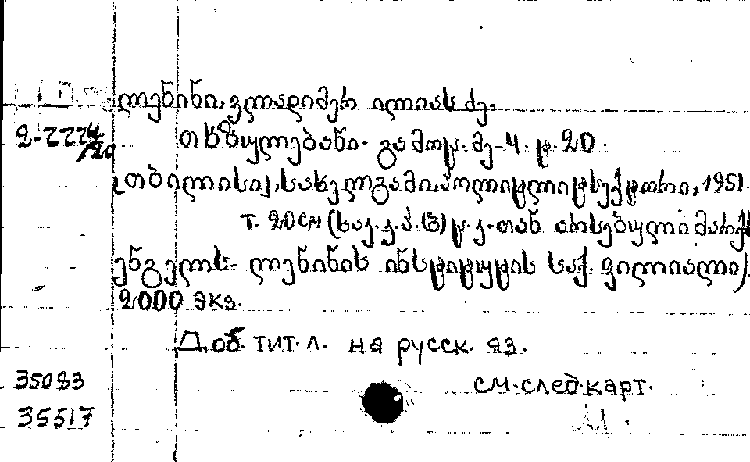 ლენინი, ვლადიმერ ილიას ძე.
2-7224/20 თხზულებანი. გამოც. მე-4. ტ. 20
თბილისი, სახელგამი, პოლიტლიტსექტორი, 1951.
т. 20 см (საქ. კ. პ. (ბ) ც. კ.-თან არსებული მარქს
ენგელს. ლენინის ინსტიტუტის საქ. ფილიალი)
2000 экз.
Доб. тит. л. на русск. яз.
35083 см. след. карт.
35517